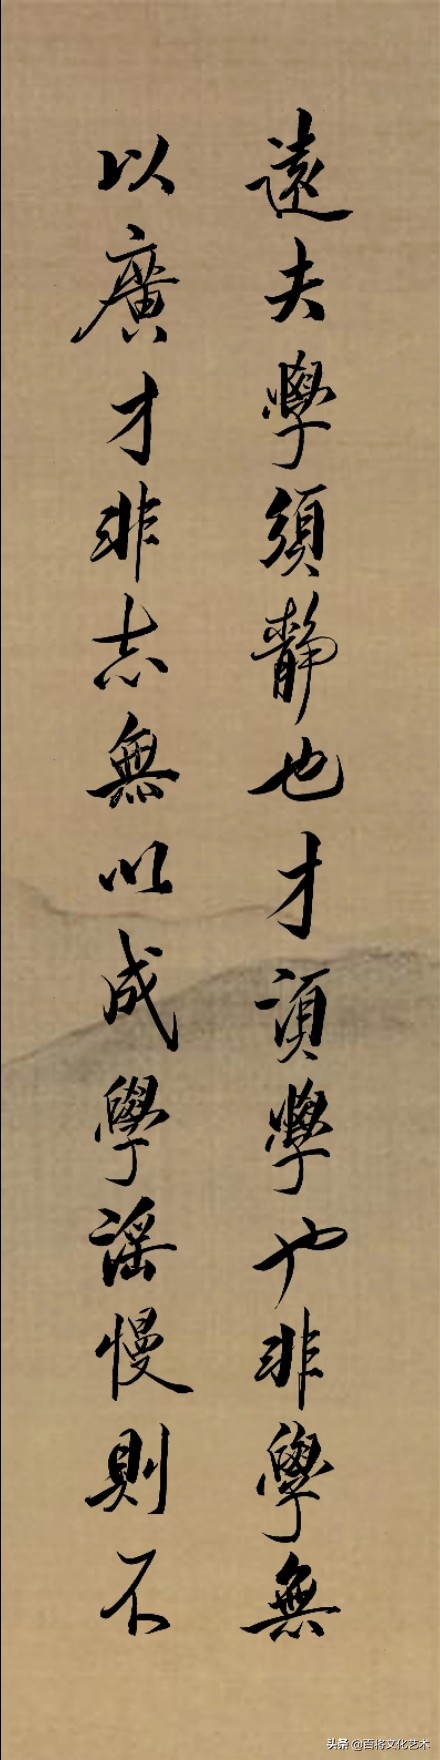 遠夫學須靜也才須學也非學無
以廣才非志無以成學謡慢則不
头条 @百将文化艺术